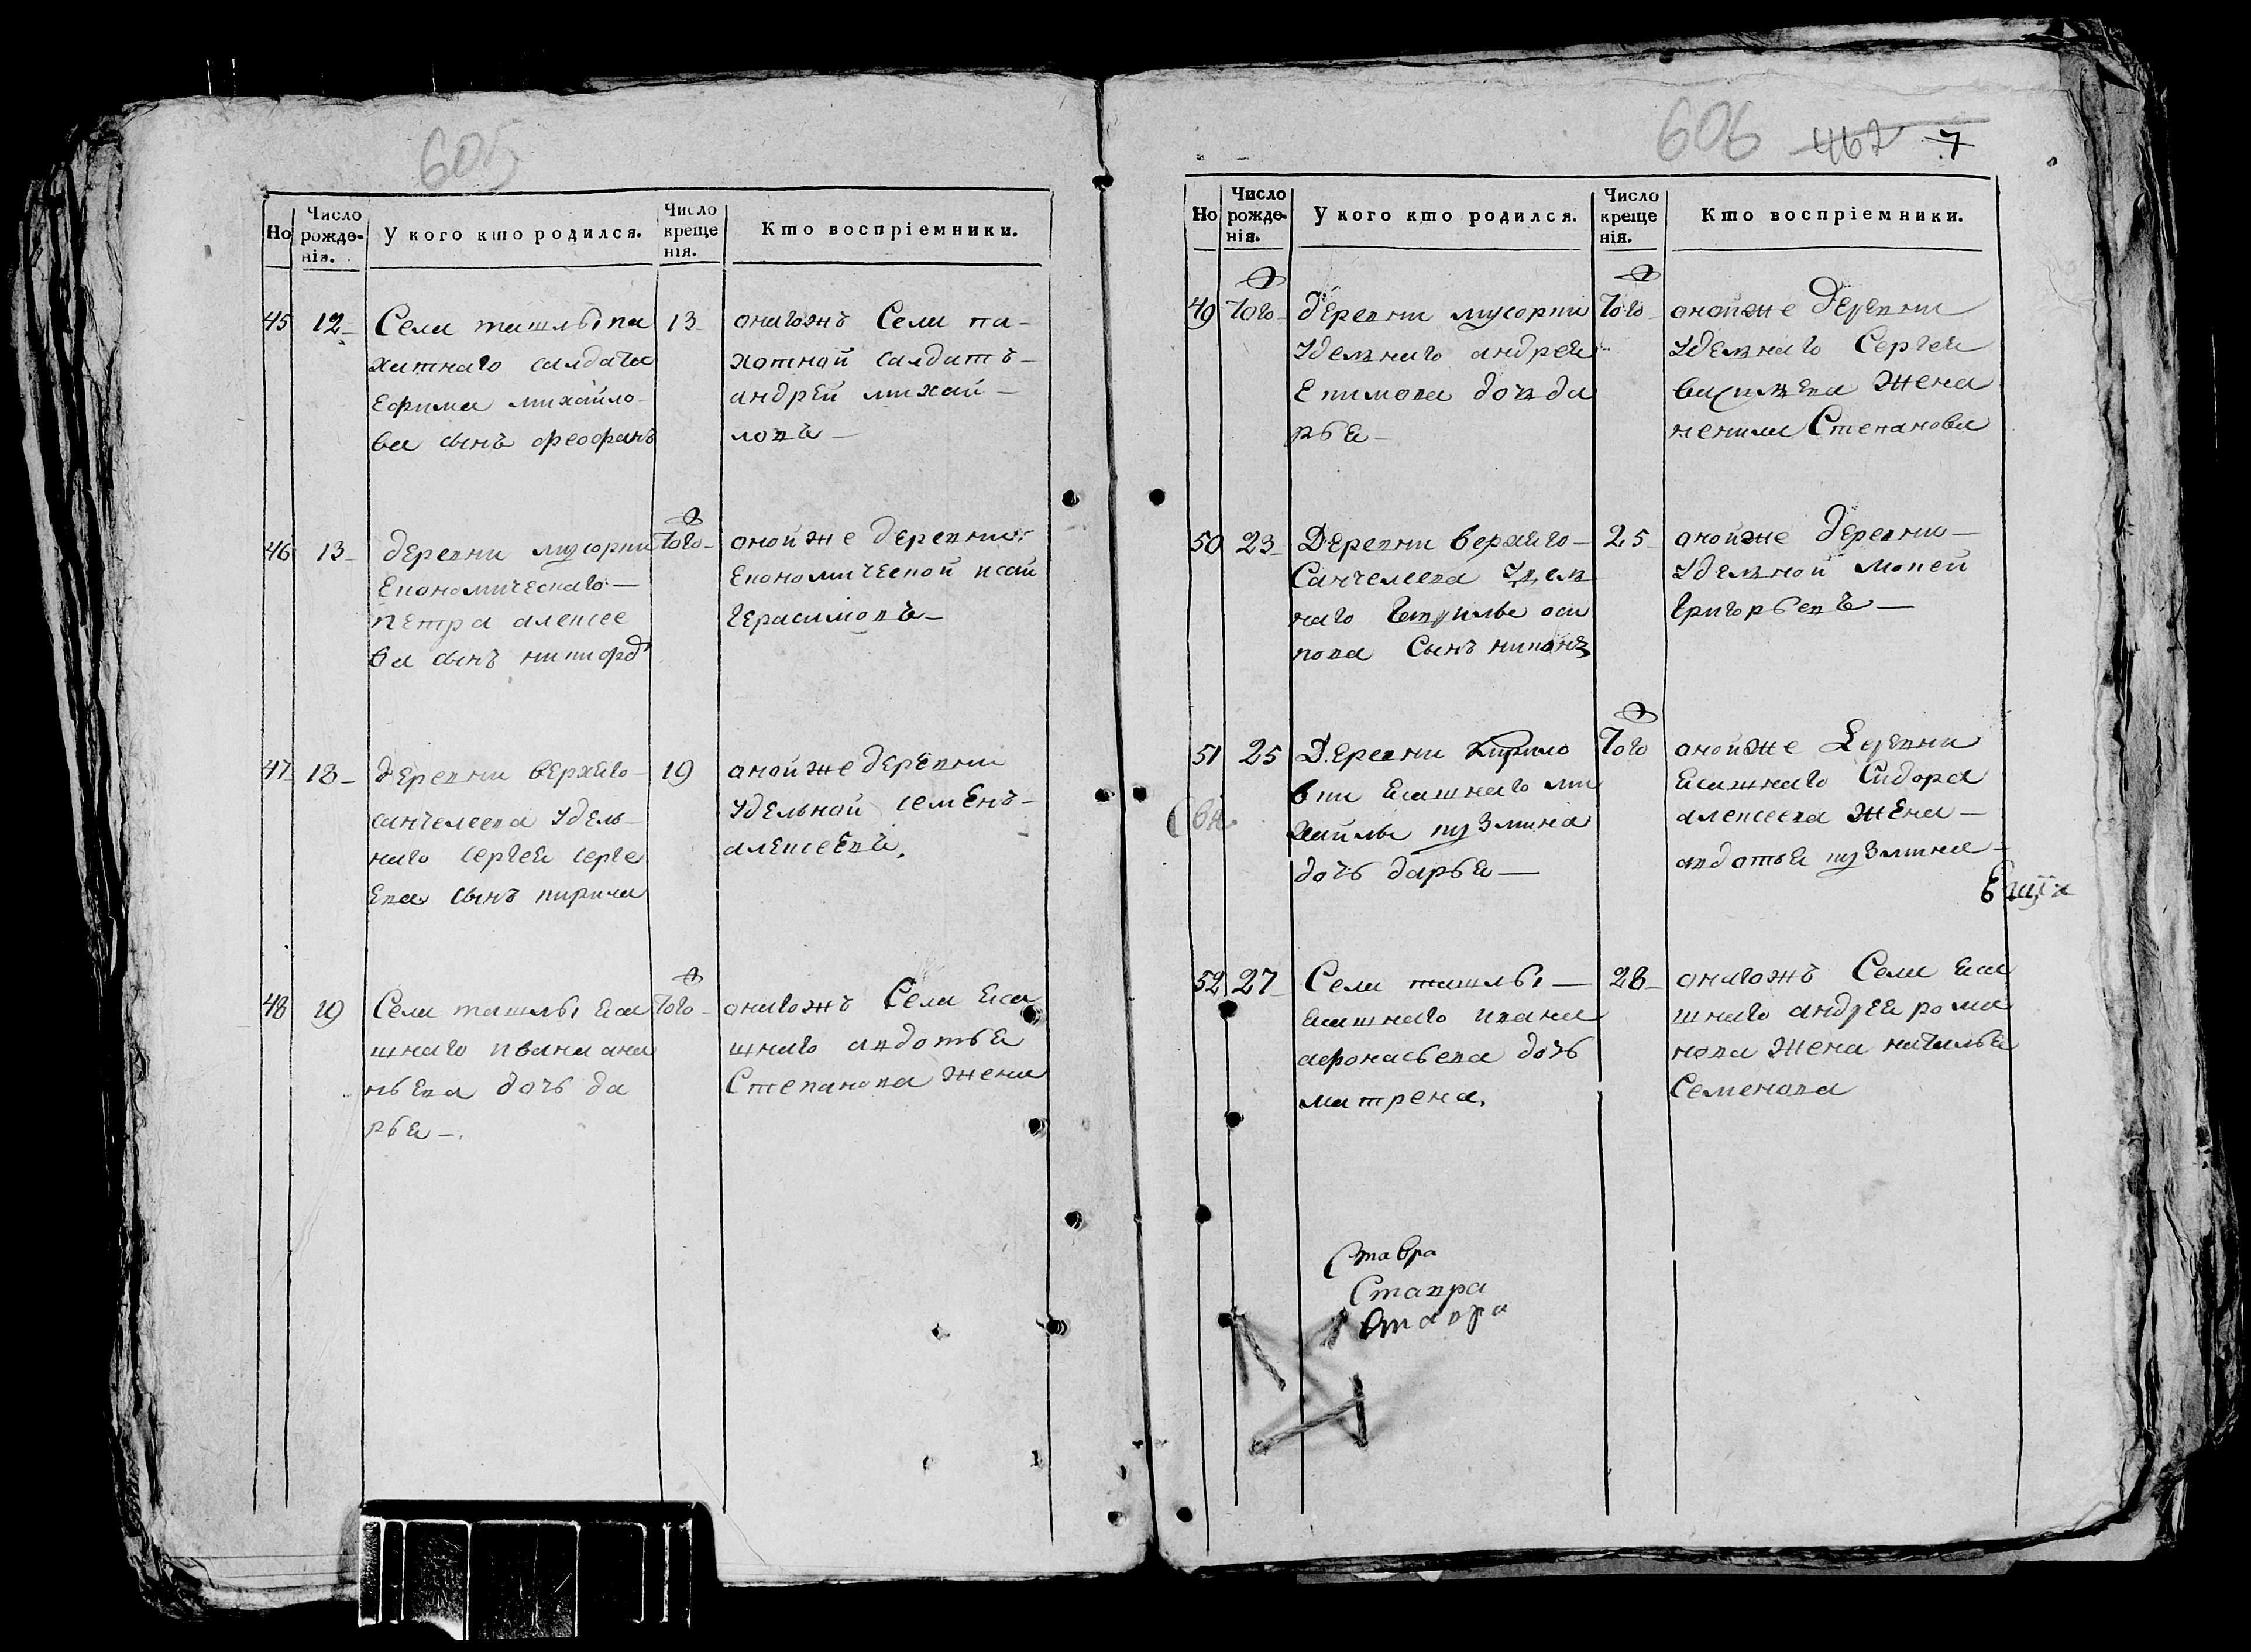 605
Но
Число рожденія.
У кого кто родился.
Число крещенія.
Кто воспріемники.
45 12
Села ташлы па
хатнаго салдата
Ефима михайло
ва сынъ феофанъ
13
онагожъ Села па-
хотной салдатъ
андрей михай-
ловъ
46 13
деревни мусорки
Економическаго
петра алексее
ва сынъ никифоръ
Того
оной же деревни
Економической исай
Герасимовъ
47 18
деревни верхнего
санчелеева Удель
наго сергея серге
ева сынъ кирила
19
оной же деревни
Удельной семенъ
алексеевъ.
48 19
Села ташлы яса
шнаго ивана ана
ньева дочь да
рья
Того
онагожъ Села яса
шнаго авдотья
Степанова жена
606 467 7
Но
Число рожденія.
У кого кто родился.
Число крещенія.
Кто воспріемники.
49 Того
деревни мусорки
Удельнаго андрея
Екимова дочь да
рья
Того
онойже деревни
Удельнаго Сергея
васильева жена
ненила Степанова
50 23
Деревни верхнего
Санчелеева Удель
наго оси
пова Сынъ
25
онойже деревни
Удельной Мокей
Григорьевъ
51 25
Деревни Кирило
вки ясашнаго ми
хайлы кузмина
дочь дарья
Того
онойже Деревни
ясашнаго Сидора
алексеева жена
авдотья кузмина
52 27
Села ташлы
ясашнаго ивана
афонасьева дочь
матрена.
28
онагожъ Села яса
шнаго андрея рома
нова жена наталья
Семенова
Ставра
Ставра
Ставра